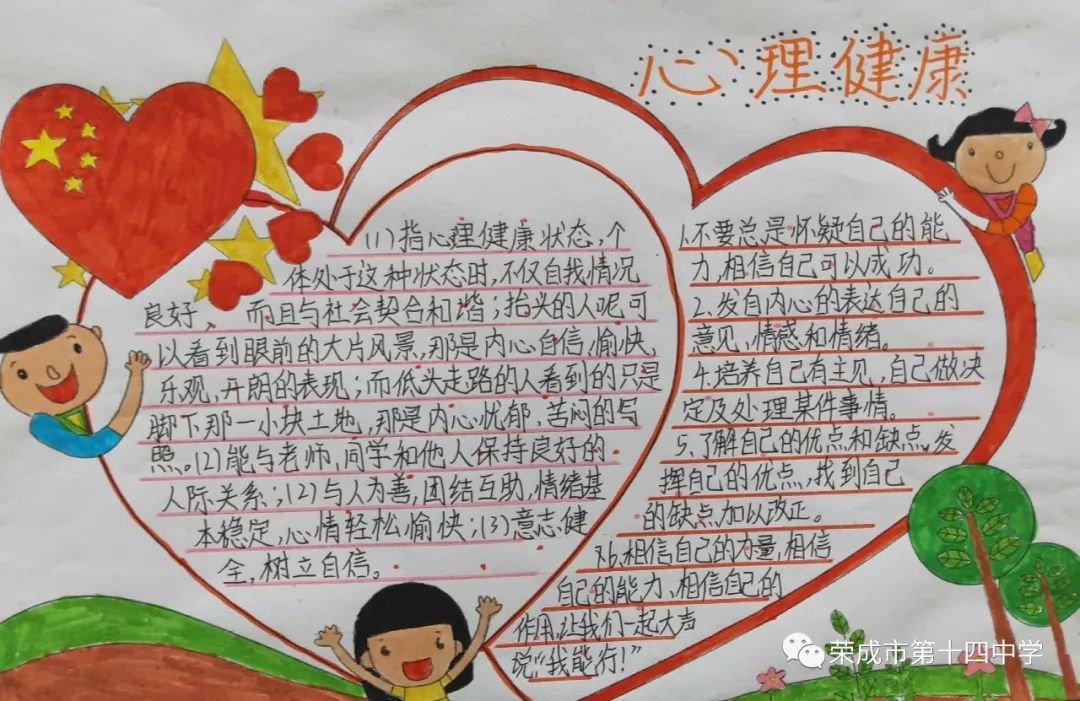 心理健康
(1)指心理健康状态,个
体处于这种状态时,不仅自我情况
良好,而且与社会契合和谐;抬兴的人呢可
以看到眼前的大片风景,那是内心自信,愉快,
乐观,开朗的表现;而低头走路的人看到的只是
脚下那一小块土地,那是内心忧郁,苦闷的写
照。(2)能与老师,同学和他人保持良好的
人际关系;(2)与人为善,团结互助,情绪基
本稳定,心情轻松愉快;(3)意志健
全,树立自信。
1.不要总是怀疑自己的能
力,相信自己可以成功。
2.发自内心的表达自己的
意见,情感和情绪。
4.培养自己有主见,自己做决
定及处理某件事情。
5.了解自己的优点和缺点,发
挥自己的优点,找到自己
的缺点,加以改正。
6.相信自己的力量,相信
自己的能力,相信自己的
作用,让我们一起大声
说“我能行!”
荣成市第十四中学